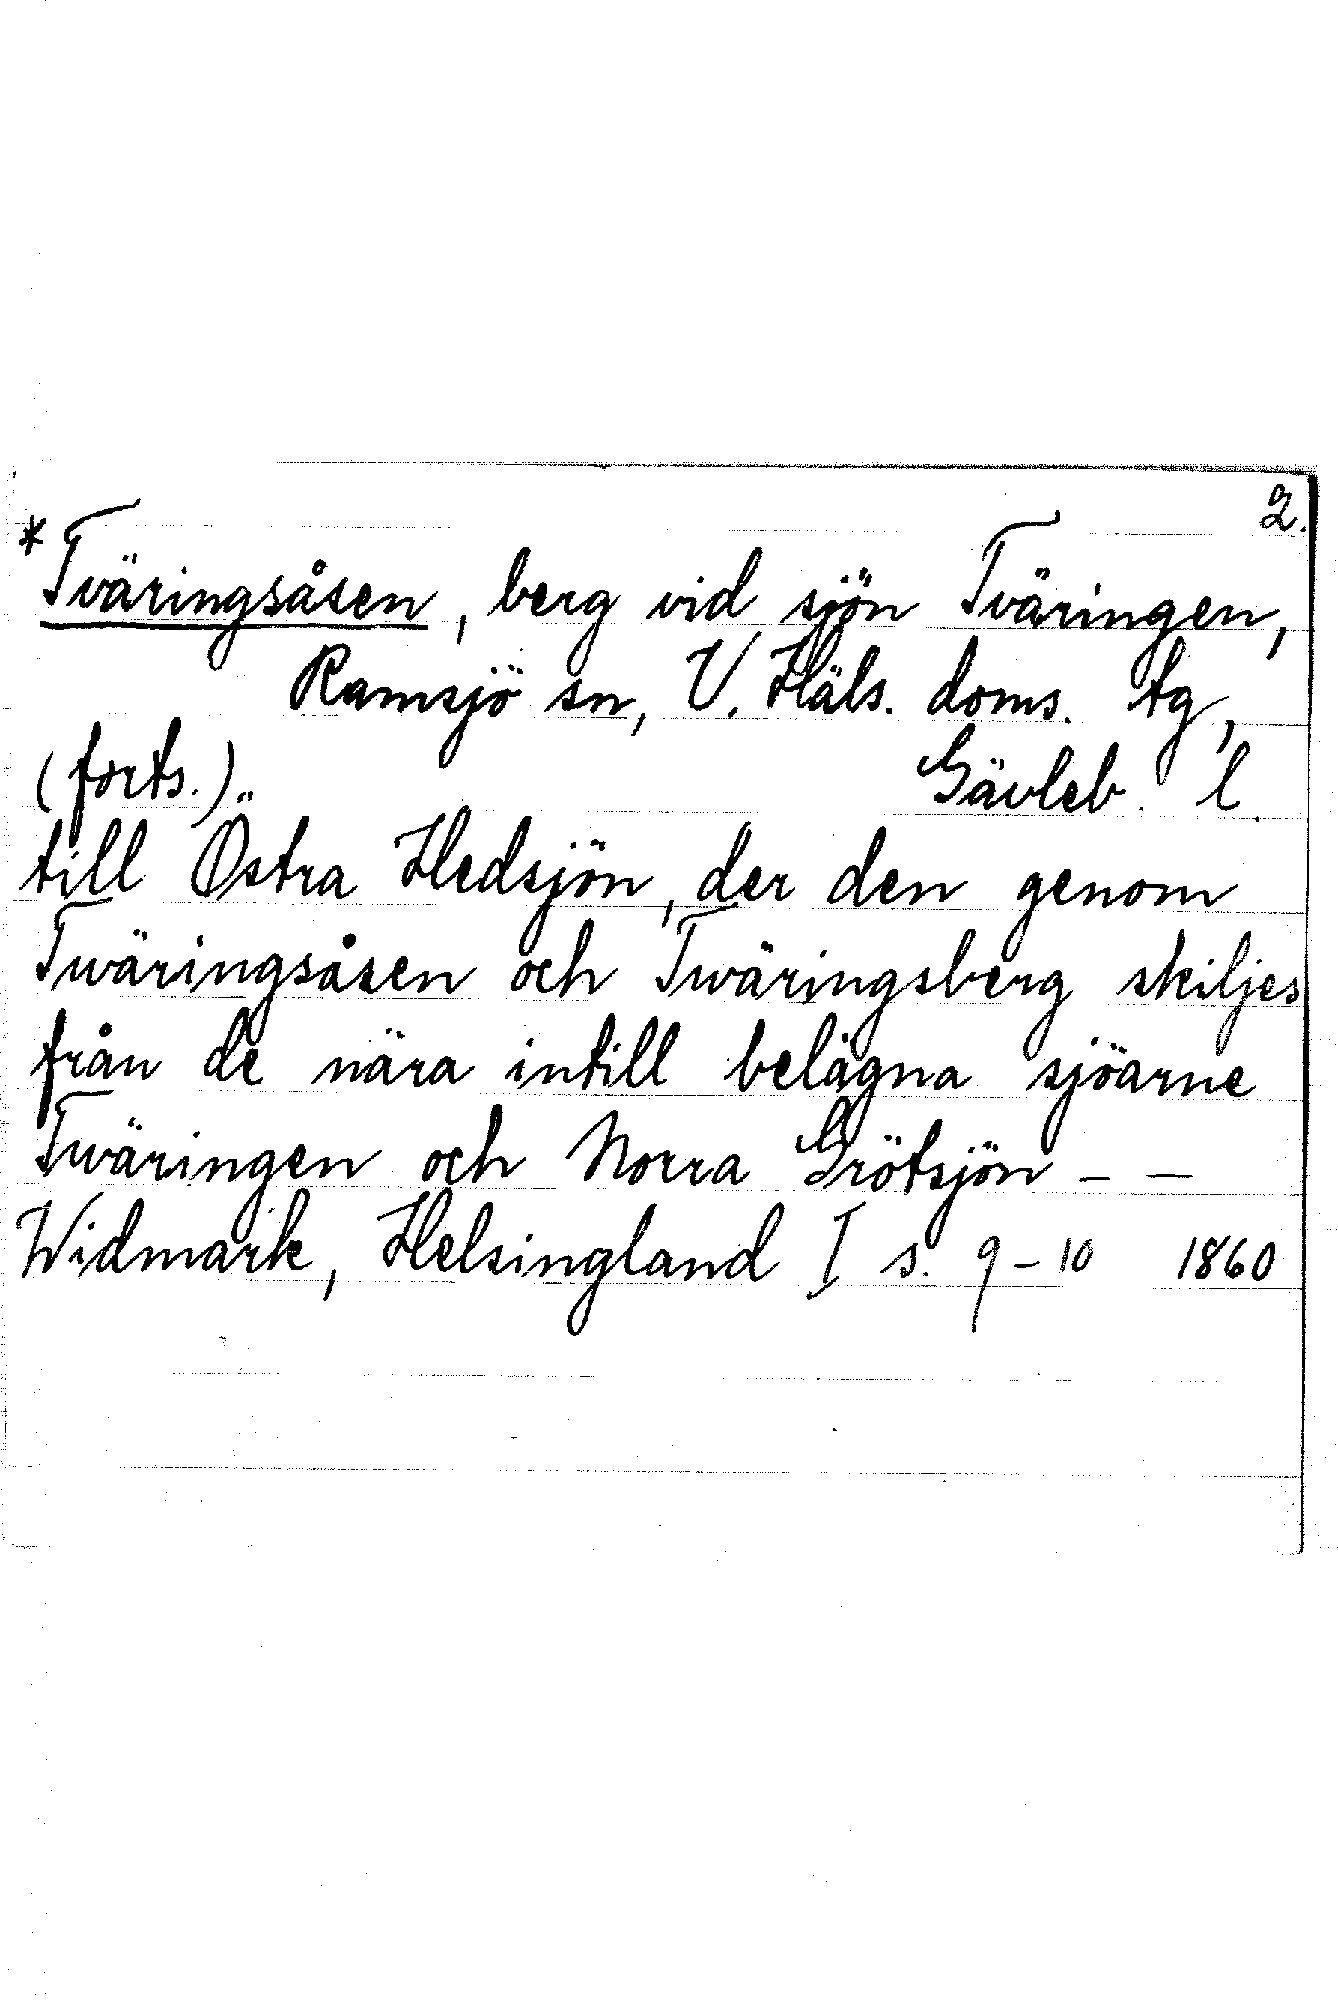 2.
*Tväringsåsen, berg vid sjön Tväringen,
Ramsjö sn, V. Häls. doms. tg,
(forts.) Gävleb. l.
till Östra Hedsjön, der den genom
Twäringsåsen och Twäringsberg skiljes
från de nära intill belägna sjöarne
Twäringen och Norra Grötsjön – –
Widmark, Helsingland I s. 9–10 1860